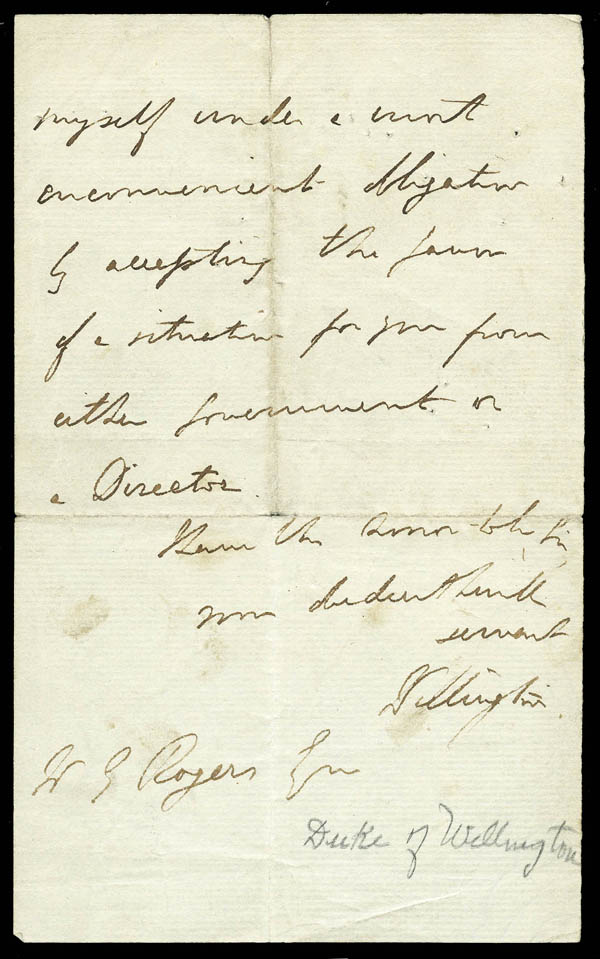 myself under a most
inconvenient obligation
by accepting the favor
of a situation for you from
either Government or
a Director.
I have the honor to be Sir
your obedient humble
servant
Wellington
W G Rogers Esqr
Duke of Wellington